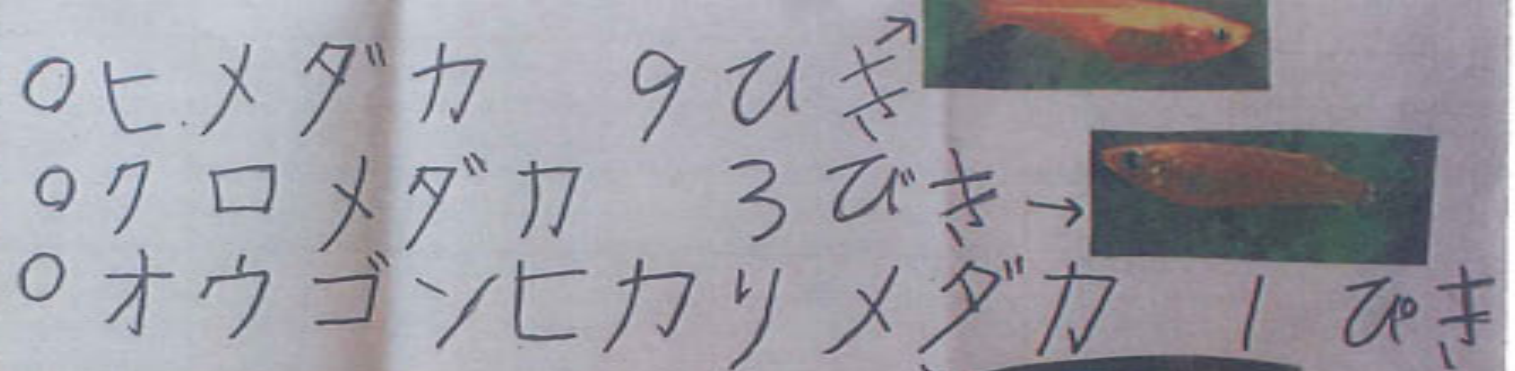 ○ヒメダカ 9ひき→
○クロメダカ 3びき→
○オウゴンヒカリメダカ 1ぴき